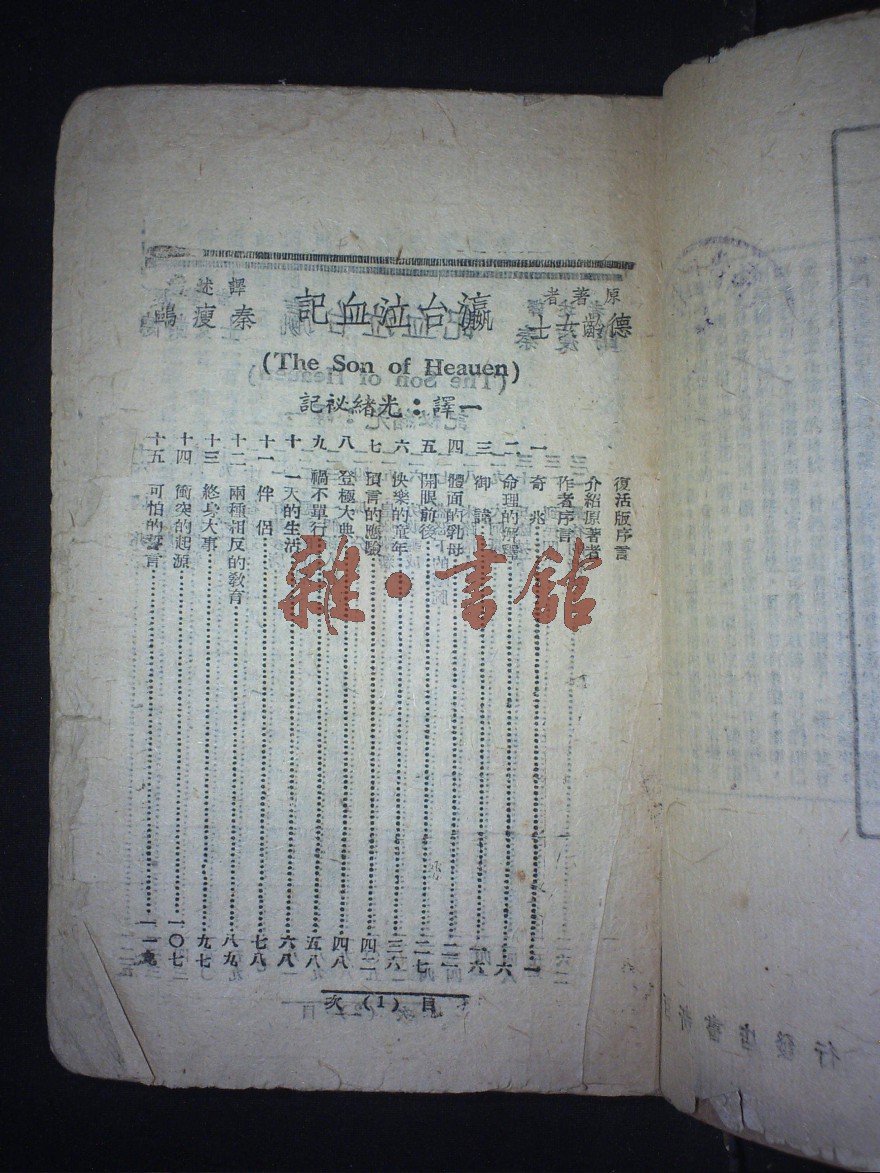 原著者
德齡女士
瀛台泣血記
譯述
秦瘦鷗
(The Son of Heauen)
一譯：光緒祕記
復活版序言
介紹原著者
作者序言
一 奇兆 一
二 命理的解釋 六
三 御 一六
四 體面的乳母 二
五 開眼前後 二七
六 快樂的童年 三六
七 預言的應驗 四二
八 登極大典 四八
九 禍不單行 五八
十 一天的生活 六八
十一 伴侶 七八
十二 兩種相反的敎育 八九
十三 終身大事 九七
十四 衝突的起源 一〇七
十五 可怕的誓言 一一
目 (1) 次
雜·書館